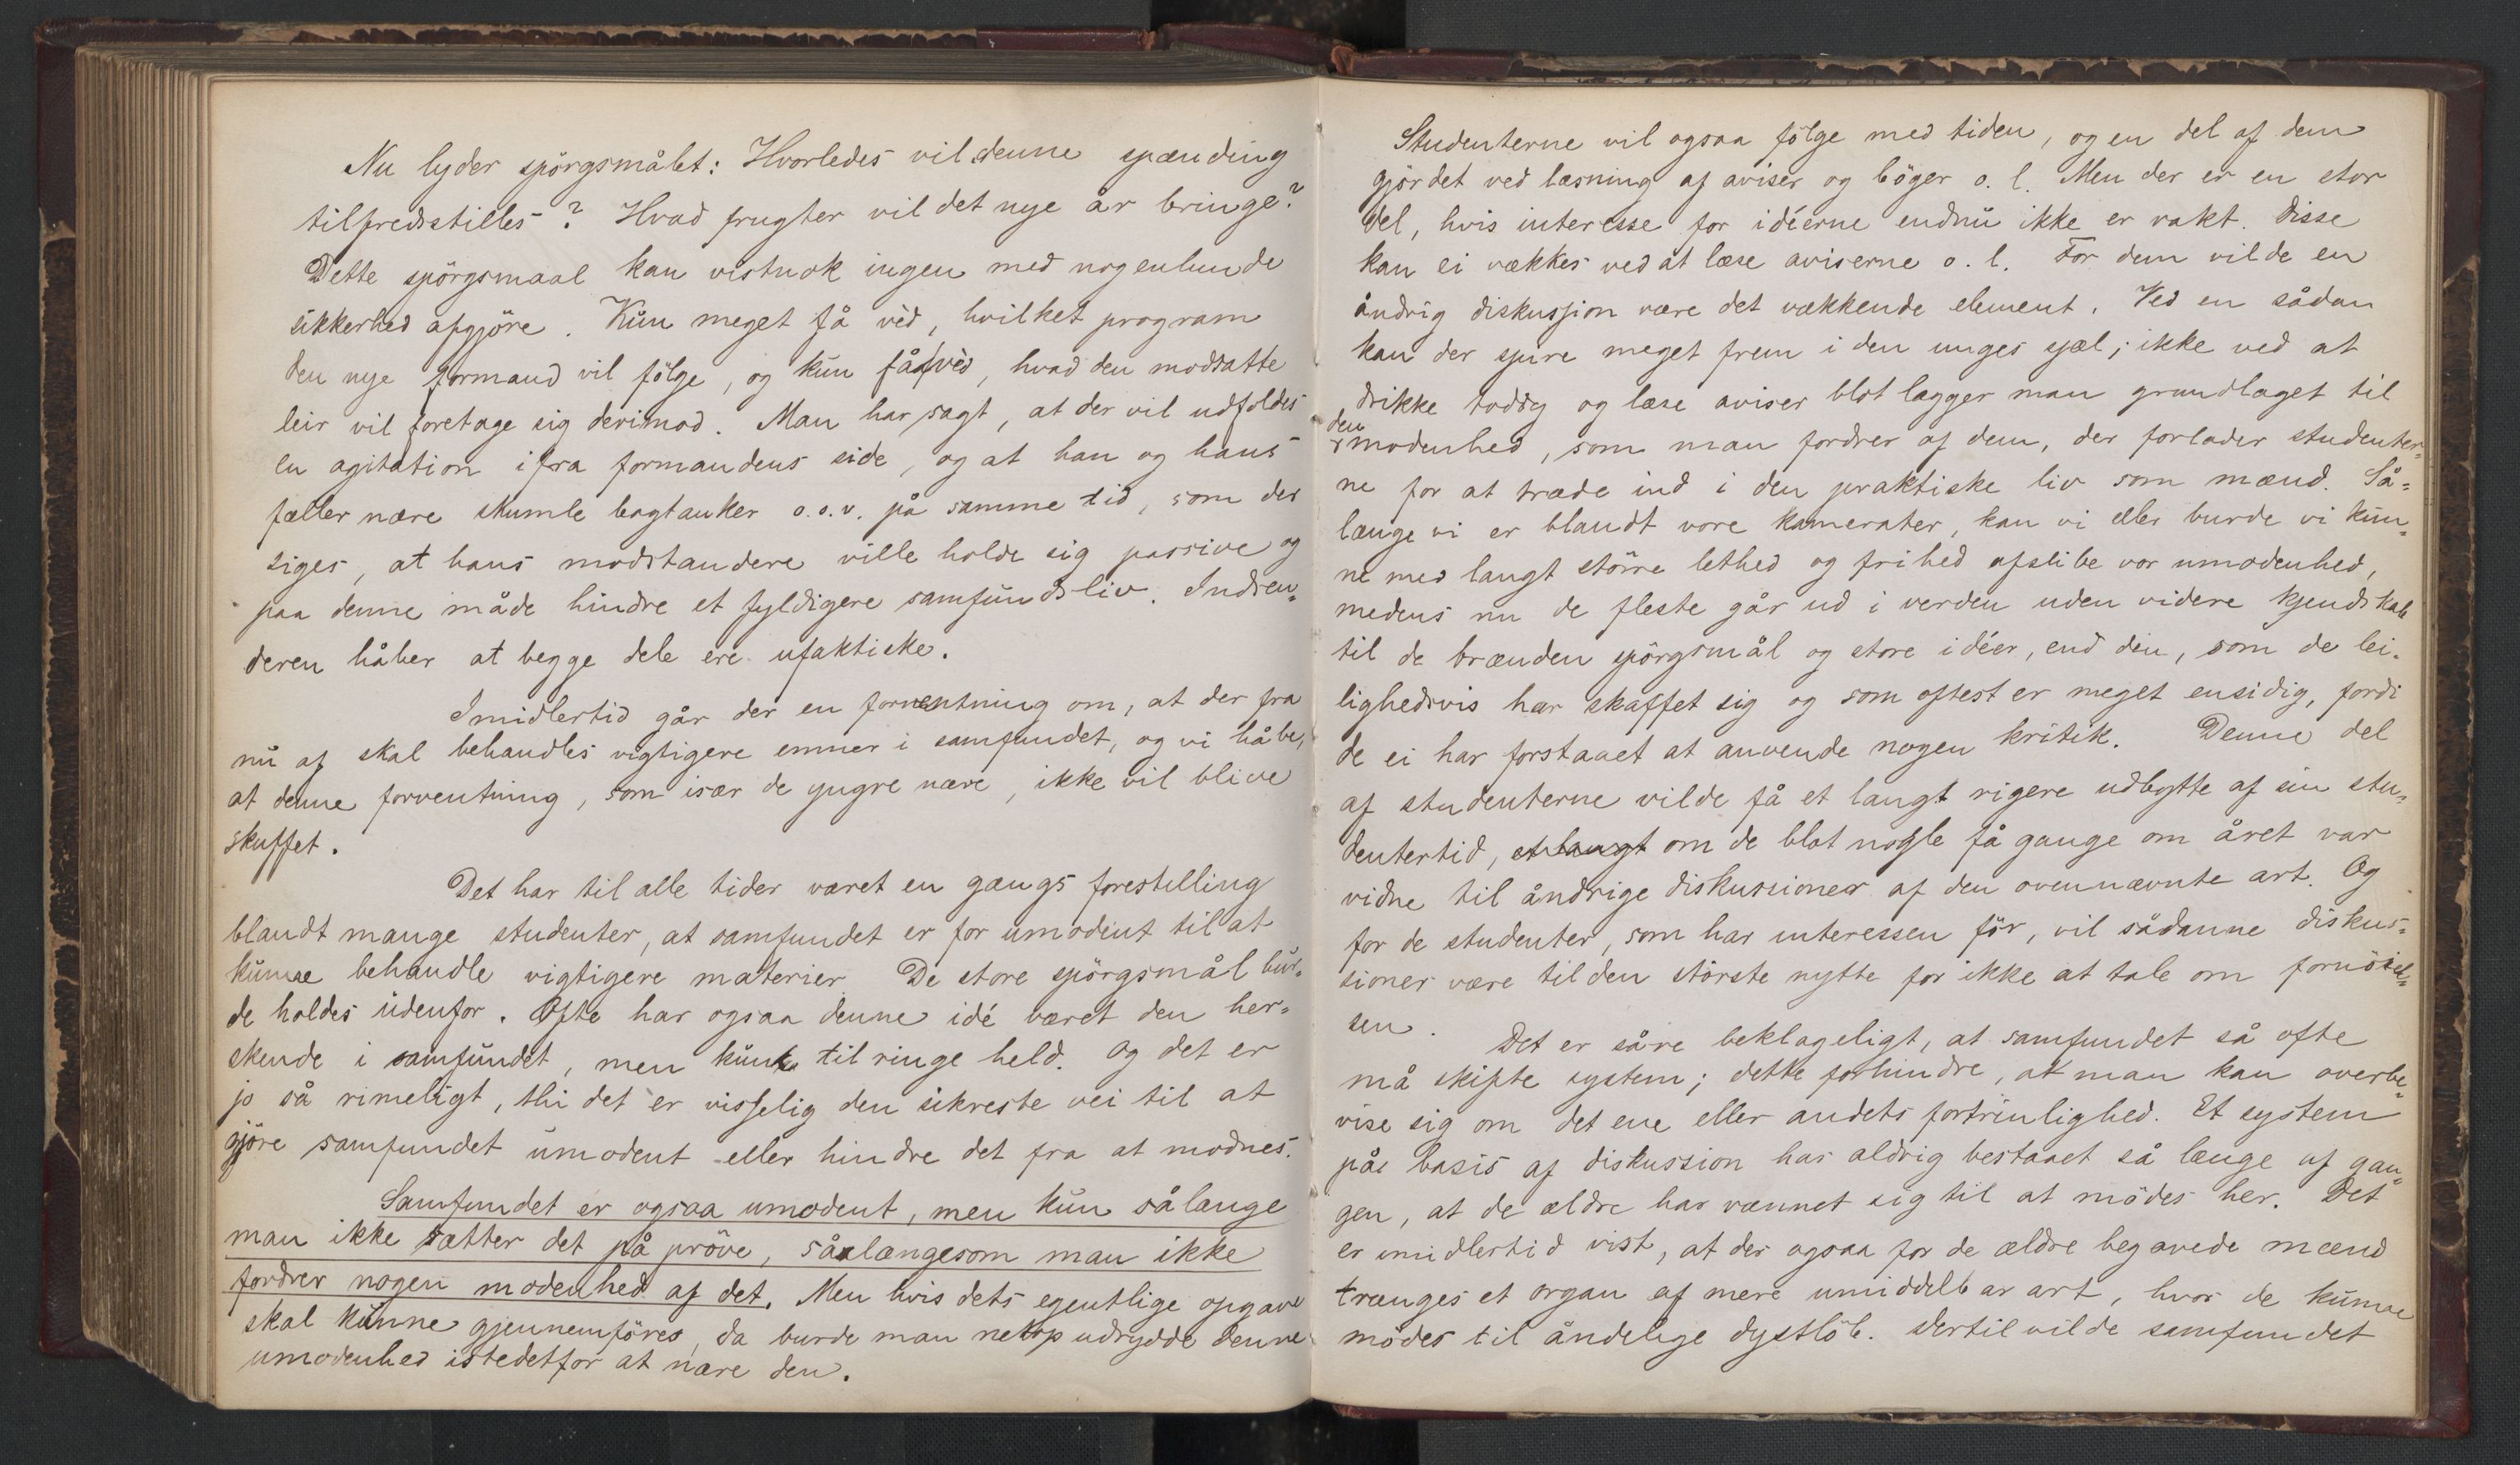 Nu lyder spörgsmålet: Hvorledes vil denne spænding
tilfredsstilles? Hvad frugter vil det nye år bringe?
Dette spörgsmaal kan vistnok ingen med nogenlunde
sikkerhed afgjöre. Kun meget få véd, hvilket program
den nye formand vil fölge, og kun få véd, hvad den modsatte
leir vil foretage sig derimod. Man har sagt, at der vil udfoldes
en agitation ifra formandens side, og at han og hans
fæller nære skumle bagtanker o.s.v. på samme tid, som der
siges, at hans modstandere ville holde sig passive og
paa denne måde hindre et fyldigere samfundsliv. Indsen-
deren håber at begge dele ere ufaktiske.
Imidlertid går der en forventning om, at der fra
nu af skal behandles vigtigere emner i samfundet, og vi håbe,
at denne forventning, som især de yngre nære, ikke vil blive
skuffet.
Det har til alle tider været en gængs forestilling
blandt mange studenter, at samfundet er for umodent til at
kunne behandle vigtigere materier. De store spörgsmål bur-
de holdes udenfor. Ofte har ogsaa denne idé været den her-
skende i samfundet, men kun til ringe held. Og det er
jo så rimeligt, thi det er visselig den sikreste vei til at
gjöre samfundet umodent eller hindre det fra at modnes.
Samfundet er ogsaa umodent, men kun sålænge
man ikke sætter det på pröve, sålængesom man ikke
fordrer nogen modenhed af det. Men hvis dets egentlige opgave
skal kunne gjennemföres, da burde man netop udrydde denne
umodenhed istedetfor at nære den.
Studenterne vil ogsaa fölge med tiden, og en del af dem
gjör det ved læsning af aviser og böger o. l. Men der er en stor
del, hvis interesse for idéerne endnu ikke er vakt. Disse
kan ei vækkes ved at læse aviserne o. l. For dem vilde en
åndrig diskussjon være det vækkende element. Ved en sådan
kan der spire meget frem i den unges sjæl; ikke ved at
drikke toddy og læse aviser blot lægger man grundlaget til
den modenhed, som man fordrer af dem, der forlader studenter-
ne for at træde ind i den praktiske liv som mænd. Så-
længe vi er blandt vore kamerater, kan vi eller burde vi kun-
ne med langt större lethed og frihed afslibe vor umodenhed,
medens nu de fleste går ud i verden uden videre kjendskab
til de brænden spörgsmål og store idéer, end den, som de lei-
lighedsvis har skaffet sig og som oftest er meget ensidig, fordi
de ei har forstaaet at anvende nogen kritik. Denne del
af studenterne vilde få et langt rigere udbytte af sin stu-
dentertid, et langt om de blot nogle få gange om året var
vidne til åndrige diskussioner af den ovennævnte art. Og
for de studenter, som har interessen för, vil sådanne diskus-
sioner være til den störste nytte for ikke at tale om fornöiel-
sen.
Det er såre beklageligt, at samfundet så ofte
må skifte system; dette forhindre, at man kan overbe-
vise sig om det ene eller andets fortrinlighed. Et system
på basis af diskussion har aldrig bestaaet så længe af gan-
gen, at de ældre har vænnet sig til at mödes her. Det
er imidlertid vist, at der ogsaa for de ældre begavede mænd
trænges et organ af mere umiddelbar art, hvor de kunne
mödes til åndelige dystlöb. Dertil vilde samfundet